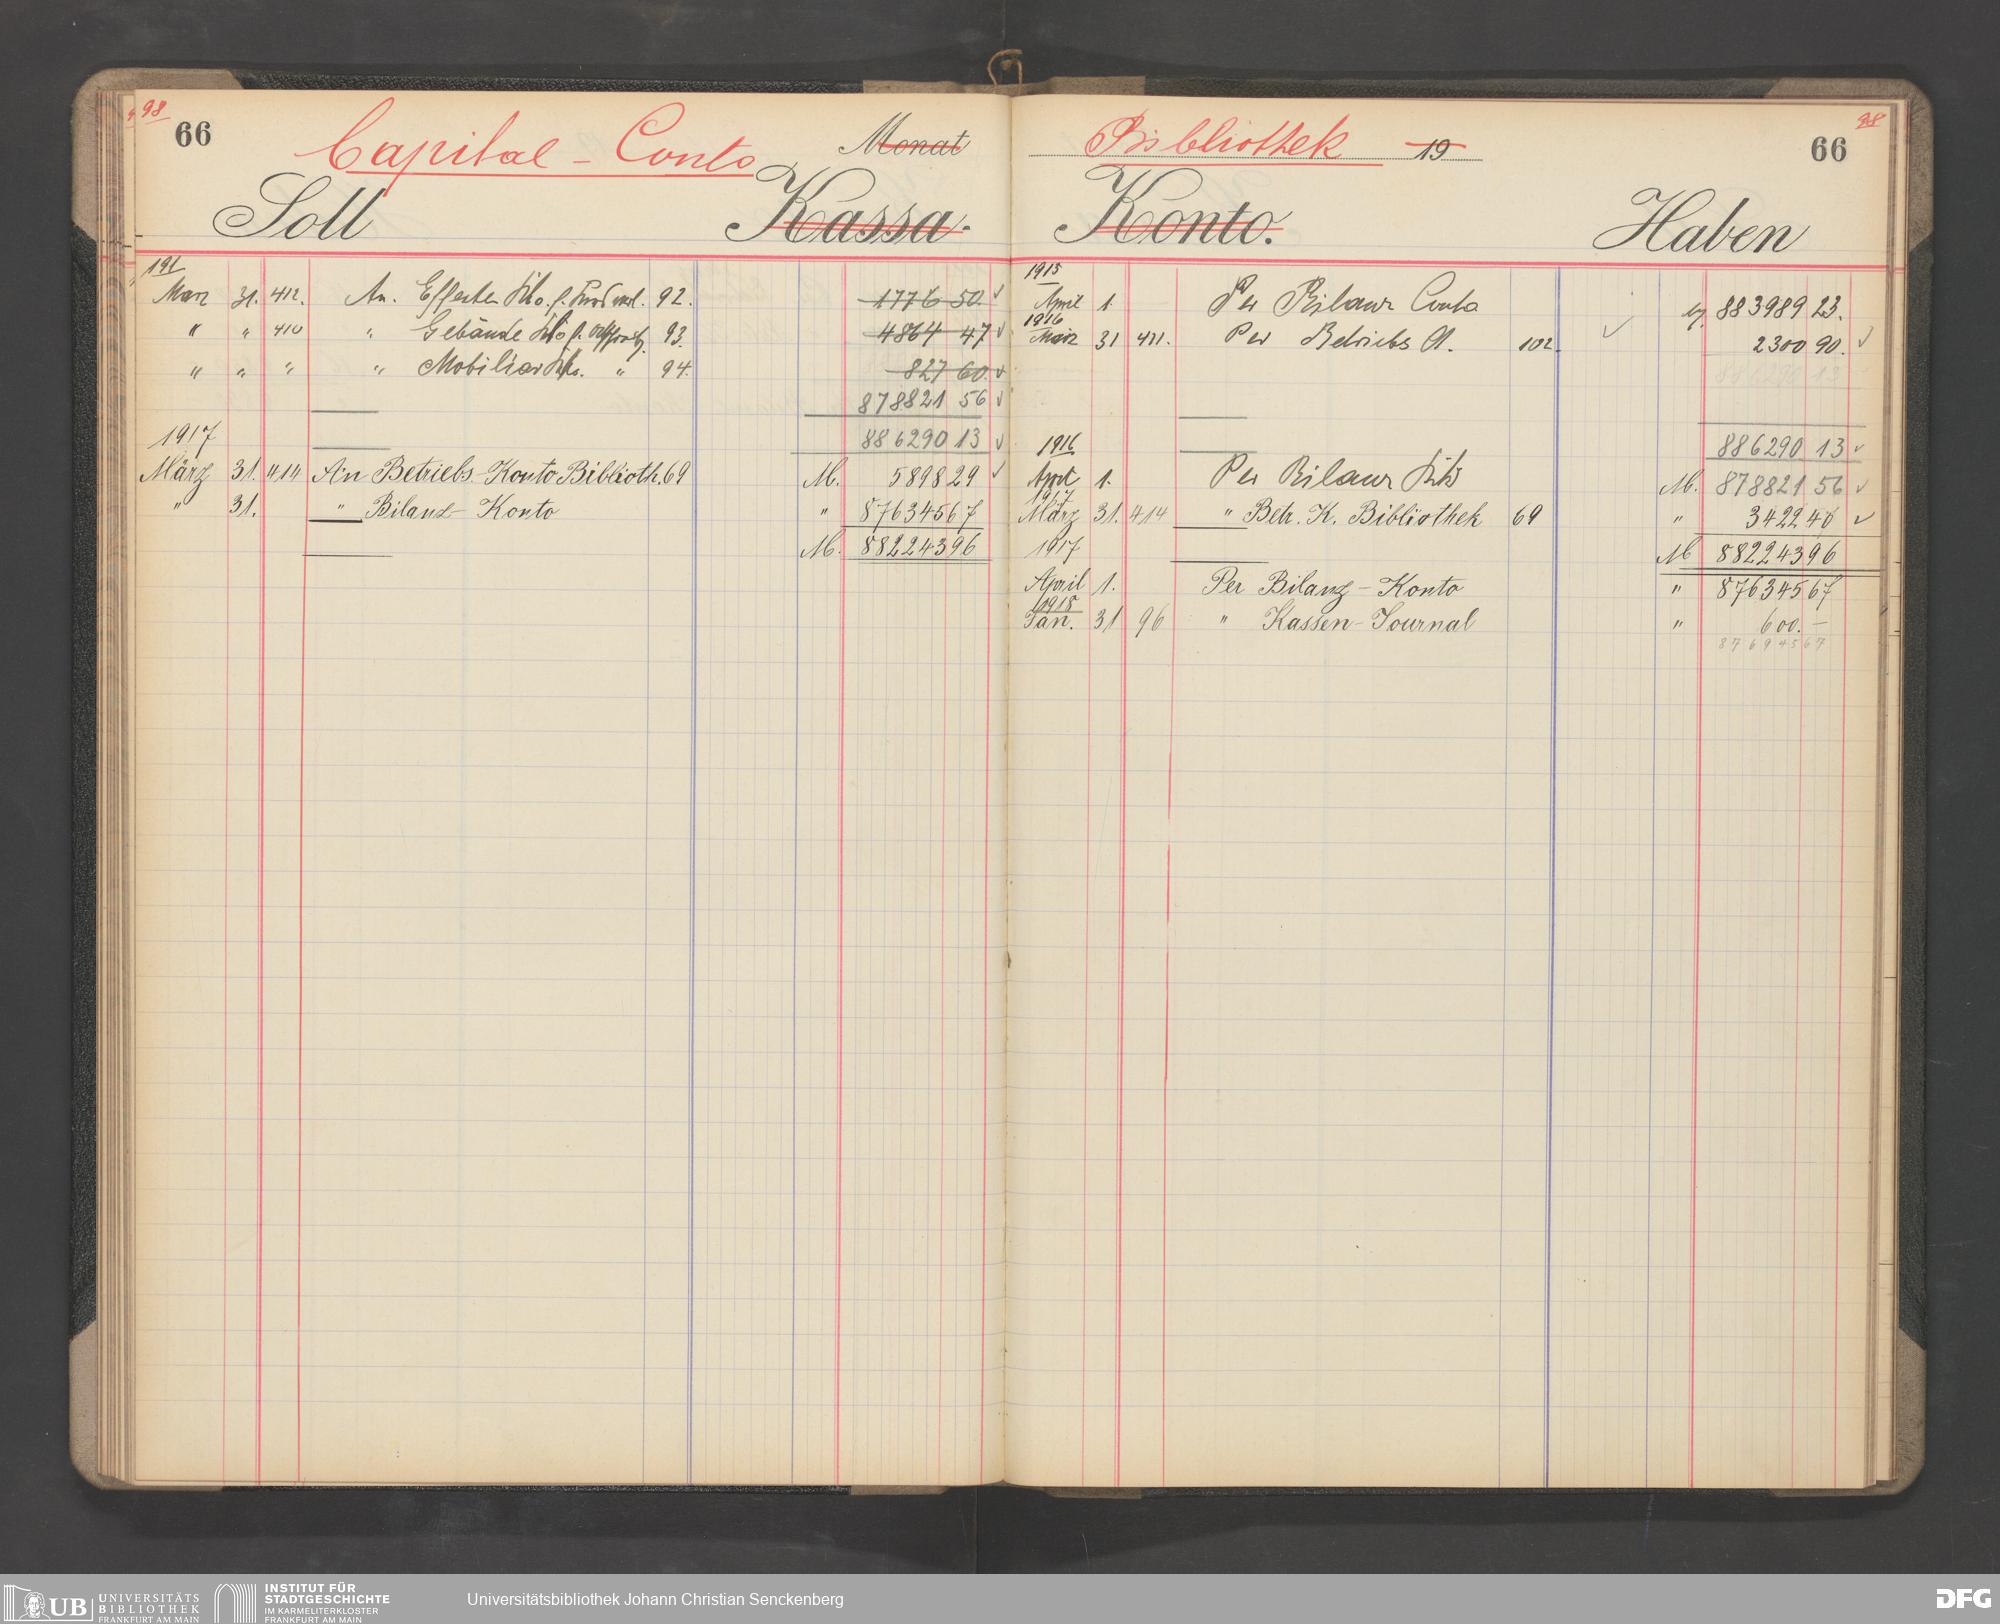 98
66
Capital - Conto
Monat
Soll
Kassa.
191
März 31. 412. An. Effecten Kto. f. 92. 1776 50.
" " 410 " Gebäude Kto f. 93. 4864 47
" " " " Mobiliar Kto. " 94. 827 60.
878821 56
886290 13
1917
März 31. 414 An Betriebs-Konto Biblioth. 69 M. 5898 29
" 31. " Bilanz-Konto " 876345 67
M. 882243 96
Bibliothek 19
98
66
Konto.
Haben
1915
April 1. Per Bilanz Conto 883989 23.
1916
März 31 411. Per Betriebs Ct. 102. 2300 90.
886290 13
886290 13
1916
April 1. Per Bilanz Kto M. 878821 56
1917
März 31. 414 " Betr. K. Bibliothek 69 " 3422 40
1917 M 882243 96
April 1. Per Bilanz-Konto " 876345 67
1918
Jan. 31 96 " Kassen-Journal " 600. -
876945 67
UB UNIVERSITÄTS
BIBLIOTHEK
FRANKFURT AM MAIN
INSTITUT FÜR
STADTGESCHICHTE
IM KARMELITERKLOSTER
FRANKFURT AM MAIN
Universitätsbibliothek Johann Christian Senckenberg
DFG